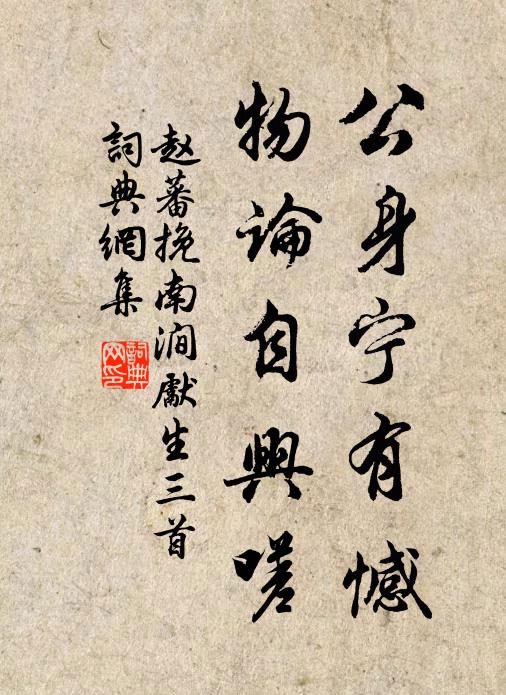 公身宁有憾
物論自興嗟
赵蕃挽南澗獻生三首
詞典網集
詞典網印